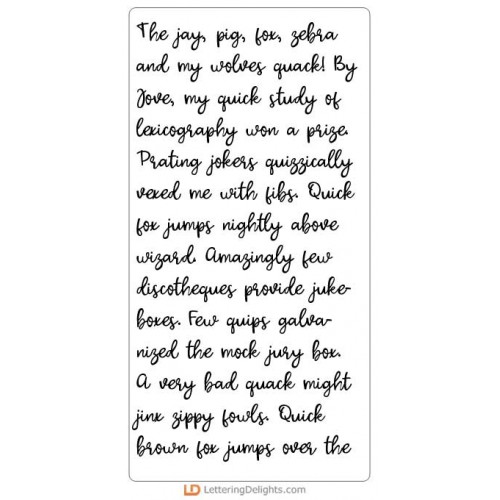 The jay, pig, fox, zebra
and my wolves quack! By
Jove, my quick study of
lexicography won a prize.
Prating jokers quizzically
vexed me with fibs. Quick
fox jumps nightly above
wizard. Amazingly few
discotheques provide juke-
boxes. Few quips galva-
nized the mock jury box.
A very bad quack might
jinx zippy fowls. Quick
brown fox jumps over the
LD LetteringDelights.com